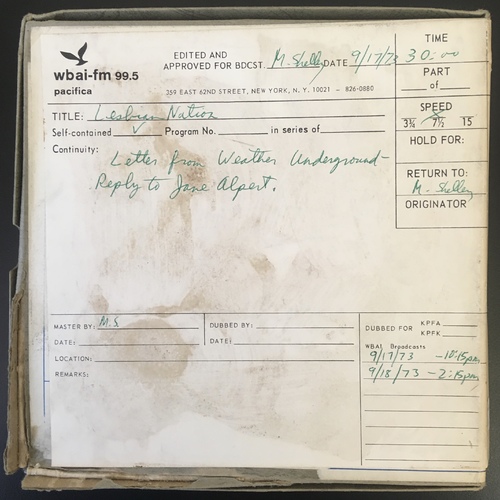 wbai-fm 99.5
pacifica
EDITED AND
APPROVED FOR BDCST. M. Shelley DATE 9/17/73
359 EAST 62ND STREET, NEW YORK, N.Y. 10021 - 826-0880
TIME
30:00
PART
of
SPEED
3¾ 7½ 15
HOLD FOR:
RETURN TO:
M. Shelley
ORIGINATOR
TITLE: Lesbian Nation
Self-contained ✓ Program No. in series of
Continuity:
Letter from Weather Underground-
Reply to Jane Alpert.
MASTER BY: M.S.
DATE:
LOCATION:
REMARKS:
DUBBED BY:
DATE:
DUBBED FOR KPFA
KPFK
WBAI Broadcasts
9/17/73 -10:15pm
9/18/73 -2:15pm